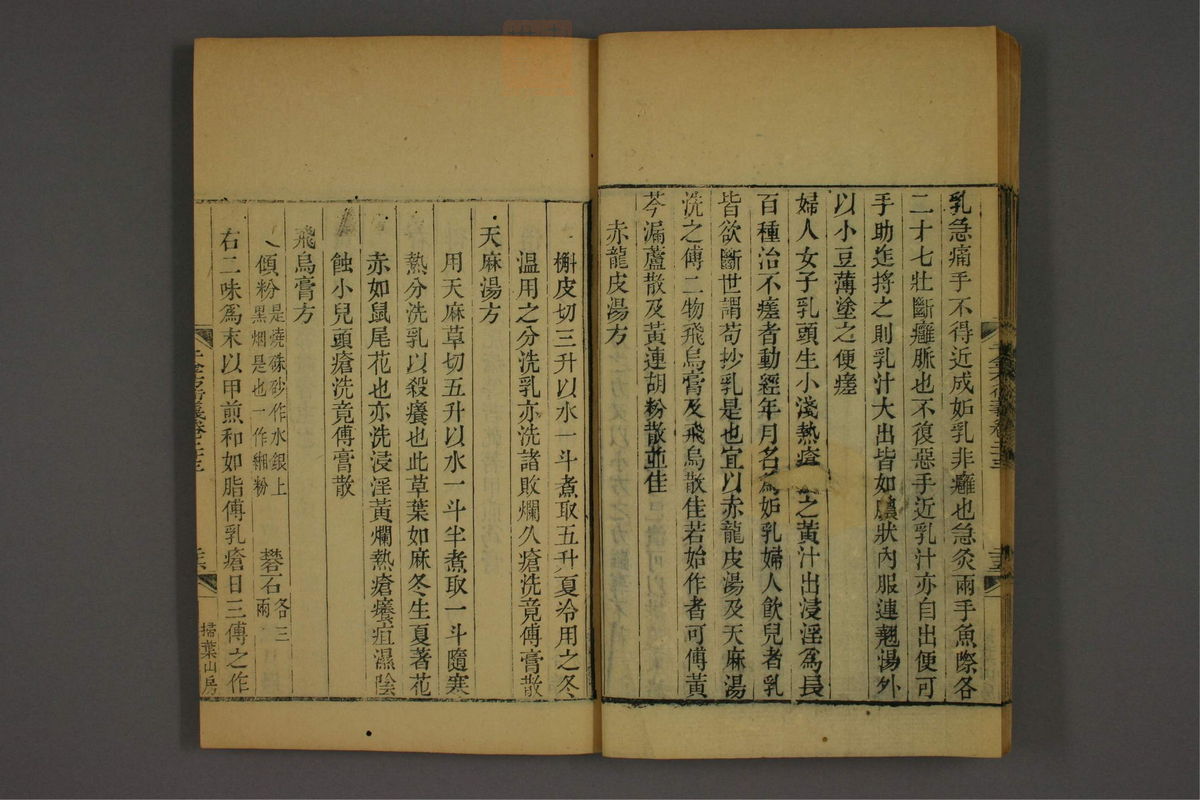 乳急痛手不得近成妬乳非癰也急灸兩手魚際各
二十七壯斷癰脈也不復惡手近乳汁亦自出便可
手助迮捋之則乳汁大出皆如膿狀內服連翹湯外
以小豆薄塗之便瘥
婦人女子乳頭生小淺熱瘡之黃汁出浸淫爲長
百種治不瘥者動經年月名爲妬乳婦人飲兒者乳
皆欲斷世謂苟抄乳是也宜以赤龍皮湯及天麻湯
洗之傅二物飛烏膏及飛烏散佳若始作者可傅黃
芩漏蘆散及黃連胡粉散並佳
赤龍皮湯方
千金方衍義卷二十三
三五
槲皮切三升以水一斗煮取五升夏冷用之冬
温用之分洗乳亦洗諸敗爛久瘡洗竟傅膏散
天麻湯方
用天麻草切五升以水一斗半煮取一斗隨寒
熱分洗乳以殺癢也此草葉如麻冬生夏著花
赤如鼠尾花也亦洗浸淫黃爛熱瘡癢疽濕陰
蝕小兒頭瘡洗竟傅膏散
飛烏膏方
傾粉是燒硃砂作水銀上黑烟是也一作湘粉 礬石各三兩
右二味爲末以甲煎和如脂傅乳瘡日三傅之作
掃葉山房